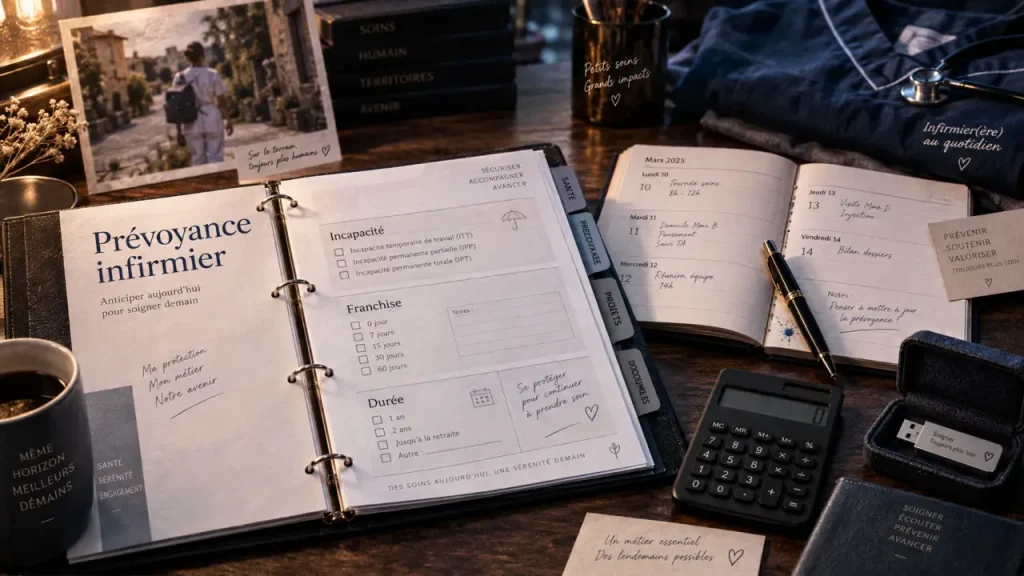 SOINS
HUMAIN
TERRITOIRES
AVENIR
Sur le terrain
toujours plus humains
Petits soins
Grands impacts
Infirmier(ère)
au quotidien
Prévoyance
infirmier
Anticiper aujourd'hui
pour soigner demain
Ma protection
Mon métier
Notre avenir
SANTÉ
SÉRÉNITÉ
ENGAGEMENT
MÊME
HORIZON
MEILLEURS
DEMAINS
SÉCURISER
ACCOMPAGNER
AVANCER
Incapacité
Incapacité temporaire de travail (ITT)
Incapacité permanente partielle (IPP)
Incapacité permanente totale (IPT)
Franchise
0 jour
7 jours
15 jours
30 jours
60 jours
Notes :
Durée
1 an
2 ans
Jusqu'à la retraite
Autre :
Se protéger
pour continuer
à prendre soin
DES SOINS AUJOURD'HUI, UNE SÉRÉNITÉ DEMAIN
SANTÉ
PROJETS
Mars 2025
Lundi 10
10
Tournée soins
8h - 12h
Mardi 11
11
Domicile Mme B
Pansement
Suivi TA
Mercredi 12
12
Réunion équipe
14h
Jeudi 13
13
Visite Mme D
Injection
Vendredi 14
14
Bilan dossiers
Notes :
Penser à mettre à jour
la prévoyance !
PRÉVENIR
SOUTENIR
VALORISER
TOUJOURS PLUS LOIN
0
MC
MR
M-
M+
%
7
8
9
4
5
6
1
2
3
0
+
=
Soigner
toujours plus loin
SOIGNER
ÉCOUTER
PRÉVENIR
AVANCER
Un métier essentiel
Des lendemains possibles